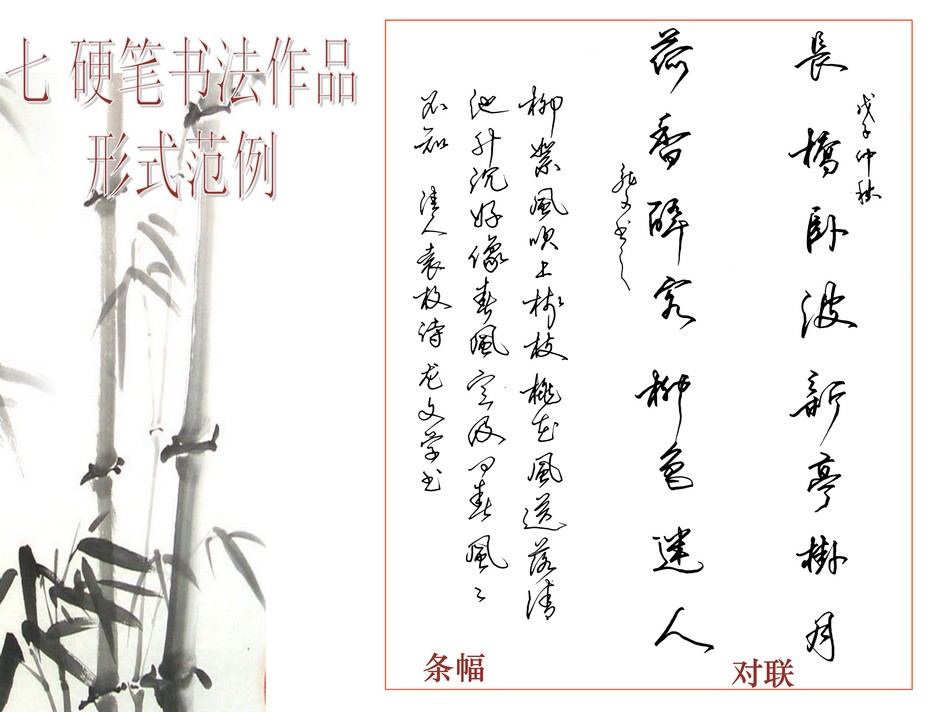 七 硬笔书法作品
形式范例
長橋卧波新亭掛月
戊子仲秋
荷香醉客柳色迷人
龙文书
柳絮風吹上樹枝桃花風送落清
池升沉好像春風定及问春風〻
不知 清人袁枚诗 龙文学书
条幅
对联